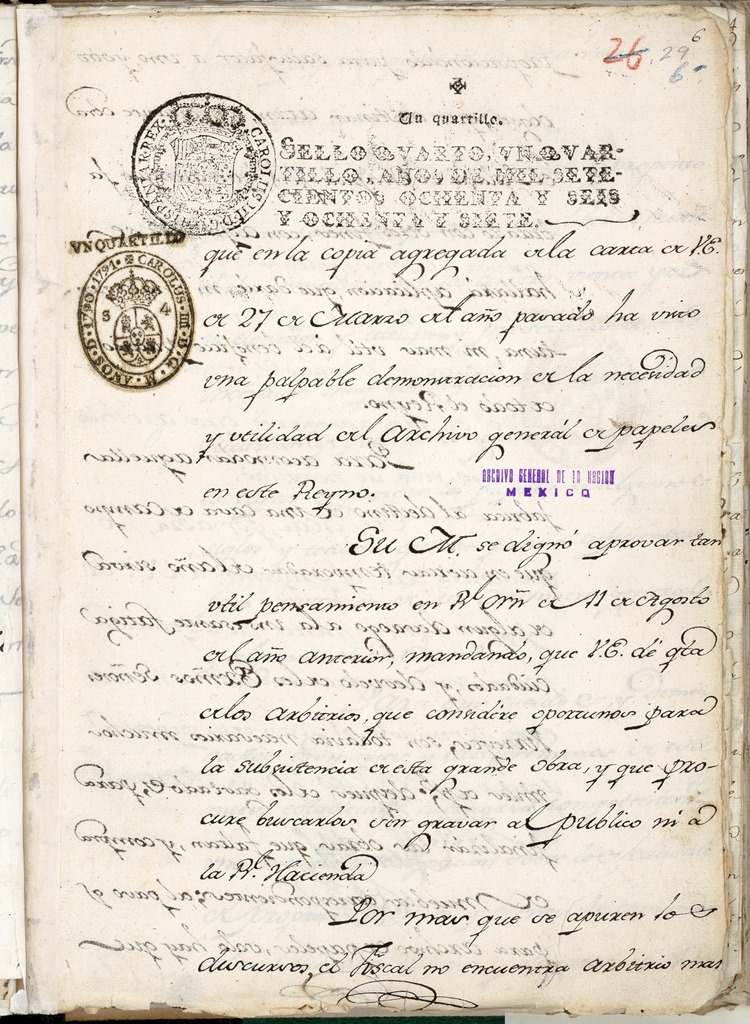 6
26 . 29
6
Un quartillo.
SELLO QVARTO, VN QVAR-
TILLO, AÑOS DE MIL SETE-
CIENTOS OCHENTA Y SEIS
Y OCHENTA Y SIETE.
VN QUARTILLO
CAROLUS IIII D. G. H. AÑOS D. 1790. 1791.
S 4
que en la copia agregada á la carta de V.E.
de 27 de Marzo del año pasado ha visto
una palpable demonstracion de la necesidad
y utilidad del Archivo general de papeles
en este Reyno.
ARCHIVO GENERAL DE LA NACION
MEXICO
SU M. se dignó aprovar tan
util pensamiento en Rl. Orñ de 11 de Agosto
del año anterior, mandando, que V.E. dé qta
de los arbitrios, que considere oportunos para
la subsistencia de esta grande obra, y que pro-
cure buscarlos sin gravar al publico ni á
la Rl. Hacienda
Por mas que se apuren los
discursos, el Fiscal no encuentra arbitrio mas